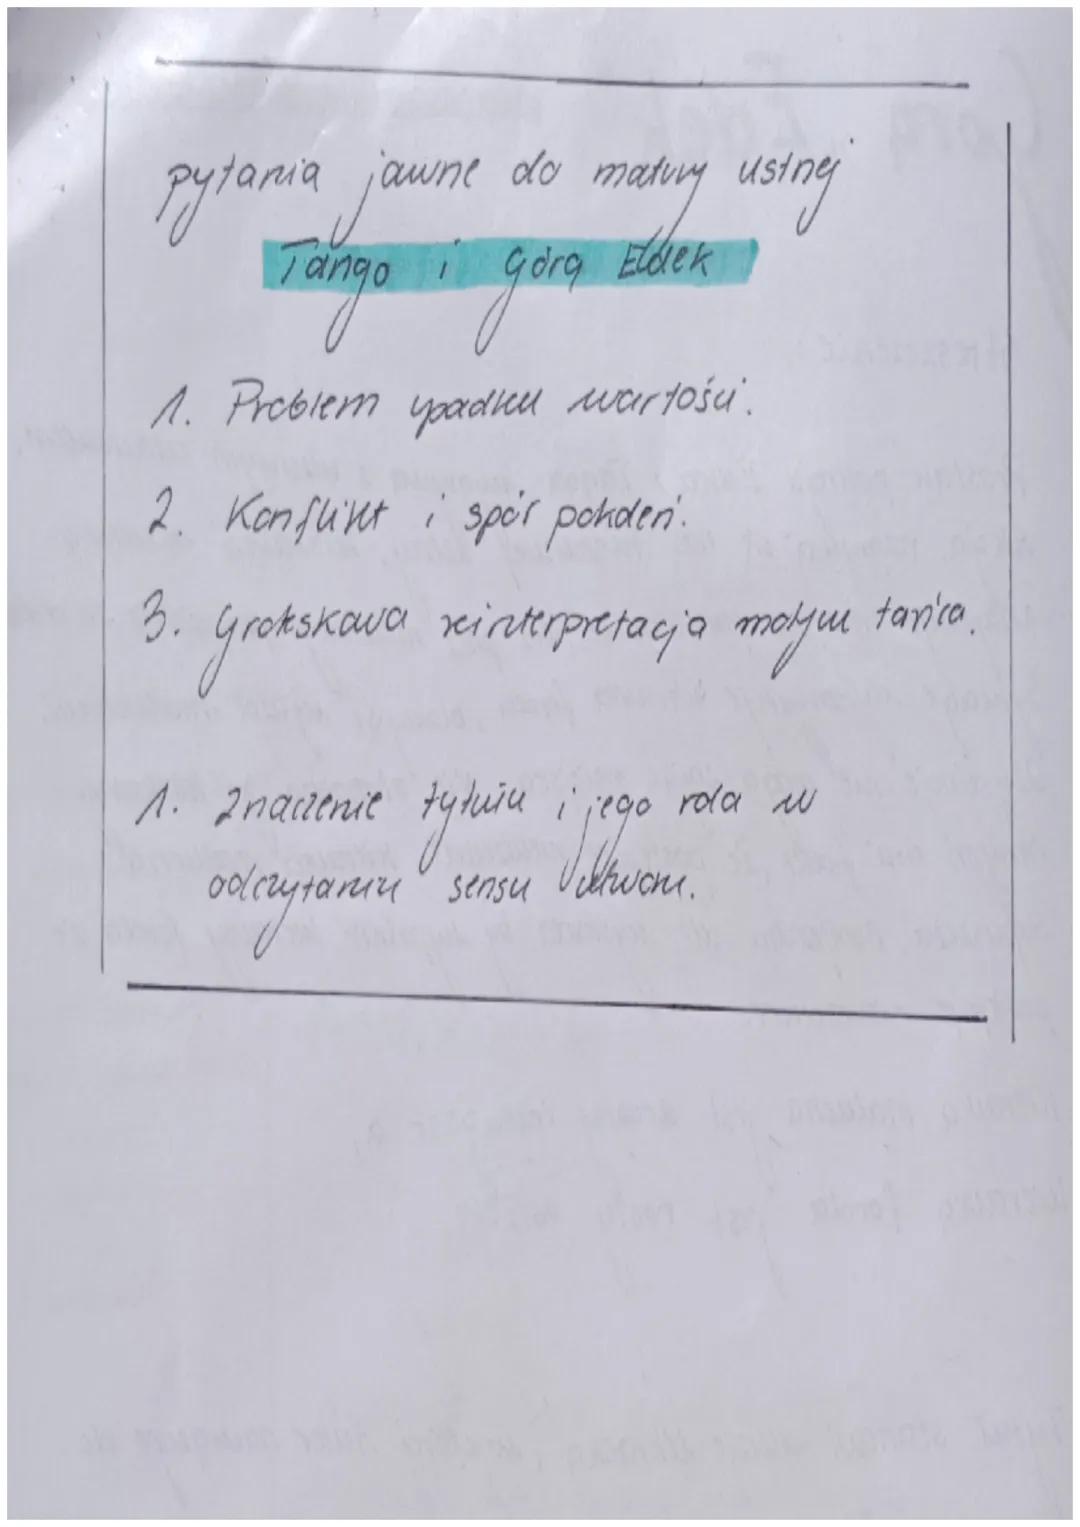 pytania jawne do matury ustnej
Tango i Górą Edek
1. Problem upadku wartości.
2 Konflikt i spór pokoleń.
3. Groteskowa reinterpretacja motywu tańca.
1. Znaczenie tytułu i jego rola w
odczytaniu sensu utworu.